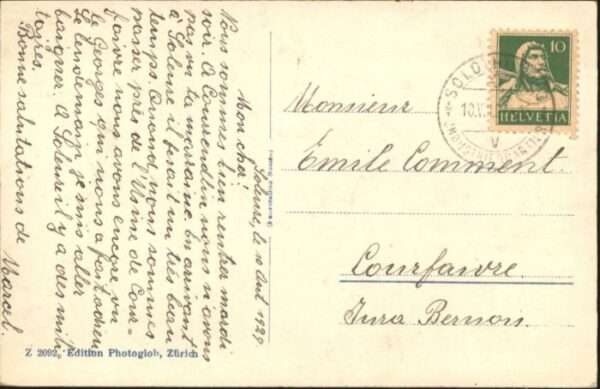 Soleure, le 10 Août 1929.
Mon cher!
Nous sommes bien rentrer mardi
soir. A Courrendlin nous n'avons
pas vu la marraine. En arrivant
à Soleure il ferait un très beau
temps. Quand nous sommes
passer près de l'Usine de Cour-
faivre nous avons encore vu
le Georges qui nous a fait adieu
Le lendemain je suis aller
baigner. A Soleure il y a des mili-
taires.
Bonne salutations de
Marcel.
Z 2092, Edition Photoglob, Zürich
10
HELVETIA
SOLO
10.V
V
Monsieur
Emile Comment.
Courfaivre.
Jura Bernois.